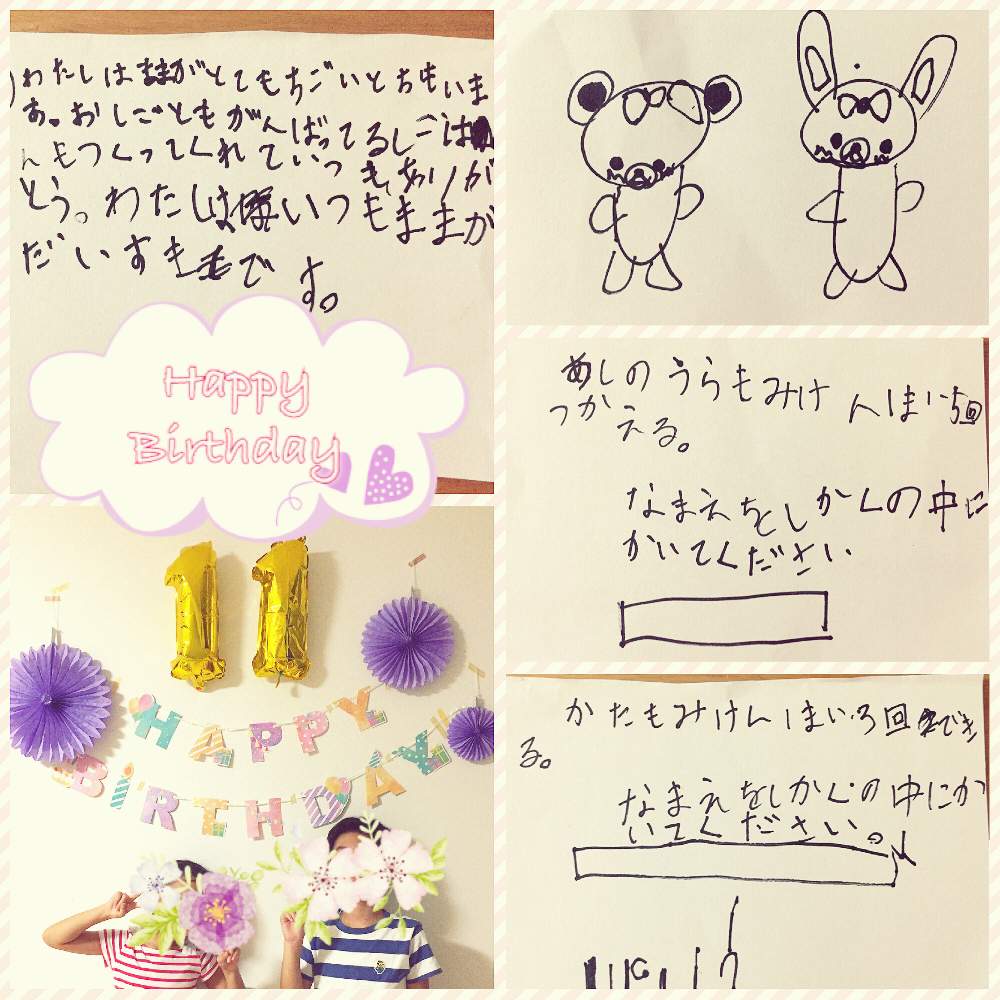 わたしはままがとてもちごいとちもいま
あ。おしごともがんばってるしごは
んもつくってくれていっもありが
とう。わたしはいつもままが
だいすきです。
Happy
Birthday
11
HAPPY
BIRTHDAY!!
あしのうらもみけんはい5回
つかえる。
なまえをしかくの中に
かいてください
かたもみけんはい3回でき
る。
なまえをしかくの中にか
いてください。